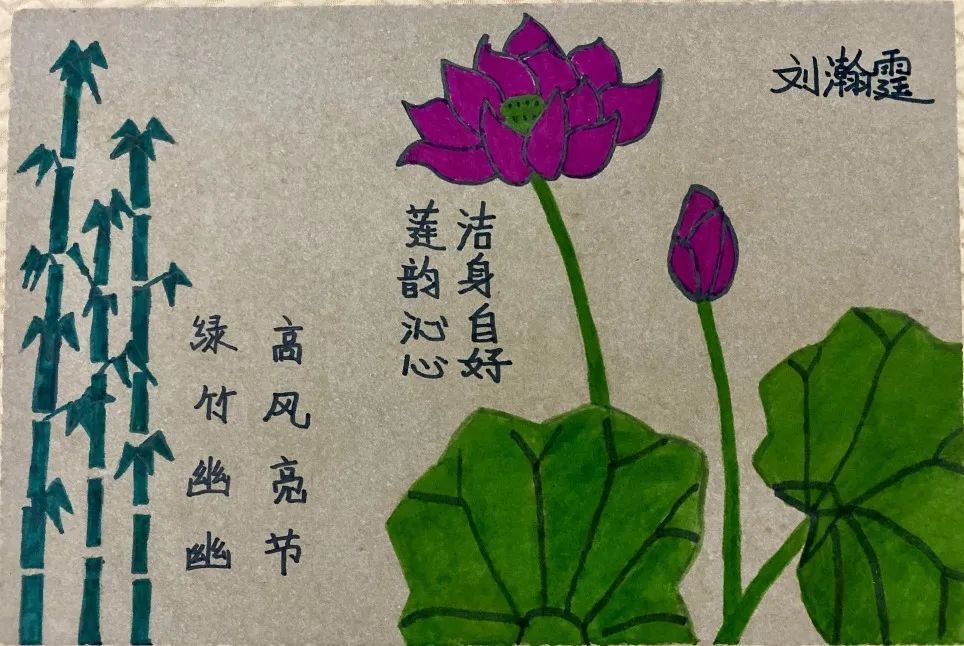 刘瀚霆
洁身自好
莲韵沁心
高风亮节
绿竹幽幽